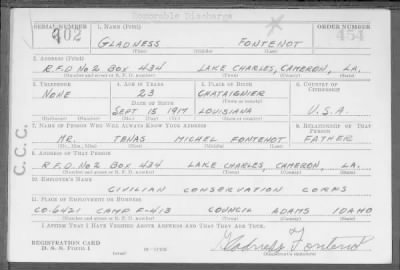 Honorable Discharge
SERIAL NUMBER 1. NAME (Print) ORDER NUMBER
902 GLADNESS FONTENOT 454
(First) (Middle) (Last)
2. ADDRESS (Print)
R.F.D. NO 2 BOX 434 LAKE CHARLES, CAMERON, LA.
(Number and street or R. F. D. number) (Town) (County) (State)
3. TELEPHONE 4. AGE IN YEARS 5. PLACE OF BIRTH 6. COUNTRY OF CITIZENSHIP
NONE 23 CHATAIGNIER
DATE OF BIRTH (Town or county)
SEPT 15 1917 LOUISIANA U.S.A.
(Mo.) (Day) (Yr.) (State or country)
7. NAME OF PERSON WHO WILL ALWAYS KNOW YOUR ADDRESS 8. RELATIONSHIP OF THAT PERSON
MR. TENAS MICHEL FONTENOT FATHER
(Mr., Mrs., Miss) (First) (Middle) (Last)
9. ADDRESS OF THAT PERSON
R.F.D. NO 2 BOX 434 LAKE CHARLES, CAMERON, LA.
(Number and street or R. F. D. number) (Town) (County) (State)
10. EMPLOYER'S NAME
CIVILIAN CONSERVATION CORPS
11. PLACE OF EMPLOYMENT OR BUSINESS
CO-6421 CAMP F-413 COUNCIL ADAMS IDAHO
(Number and street or R. F. D. number) (Town) (County) (State)
I AFFIRM THAT I HAVE VERIFIED ABOVE ANSWERS AND THAT THEY ARE TRUE.
REGISTRATION CARD
D. S. S. FORM 1
Gladness Fontenot
(Registrant's signature)
C.C.C.